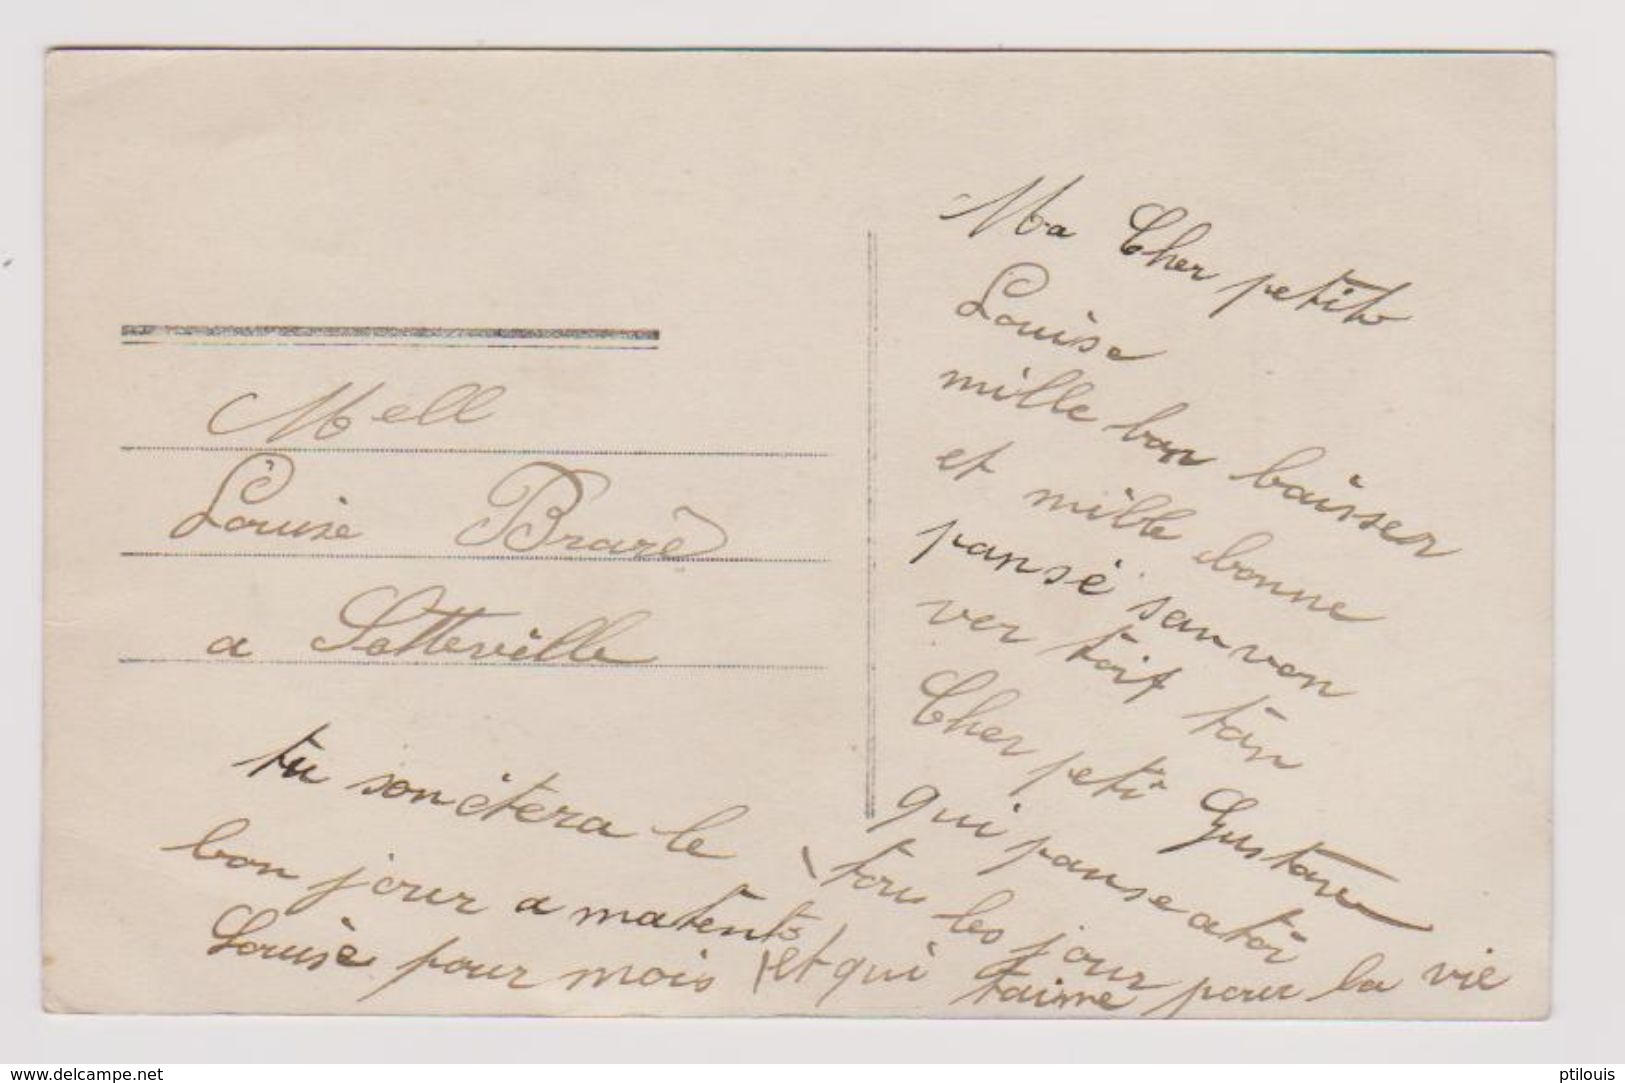 Mell
Louise Braré
a Sotteville
tu sonètera le
bon jour a matento
Louise pour mois
Ma Cher petite
Louise
mille bon baisser
et mille bonne
pansé san von
ver toit ton
Cher peti Gustave
qui panse a toi
tous les jour pour la vie
et qui taime
www.delcampe.net
ptilouis